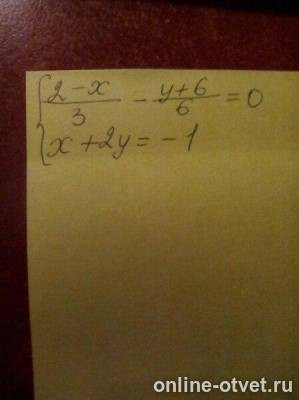 { 2-x/3 - y+6/6 = 0
x+2y = -1
online-otvet.ru